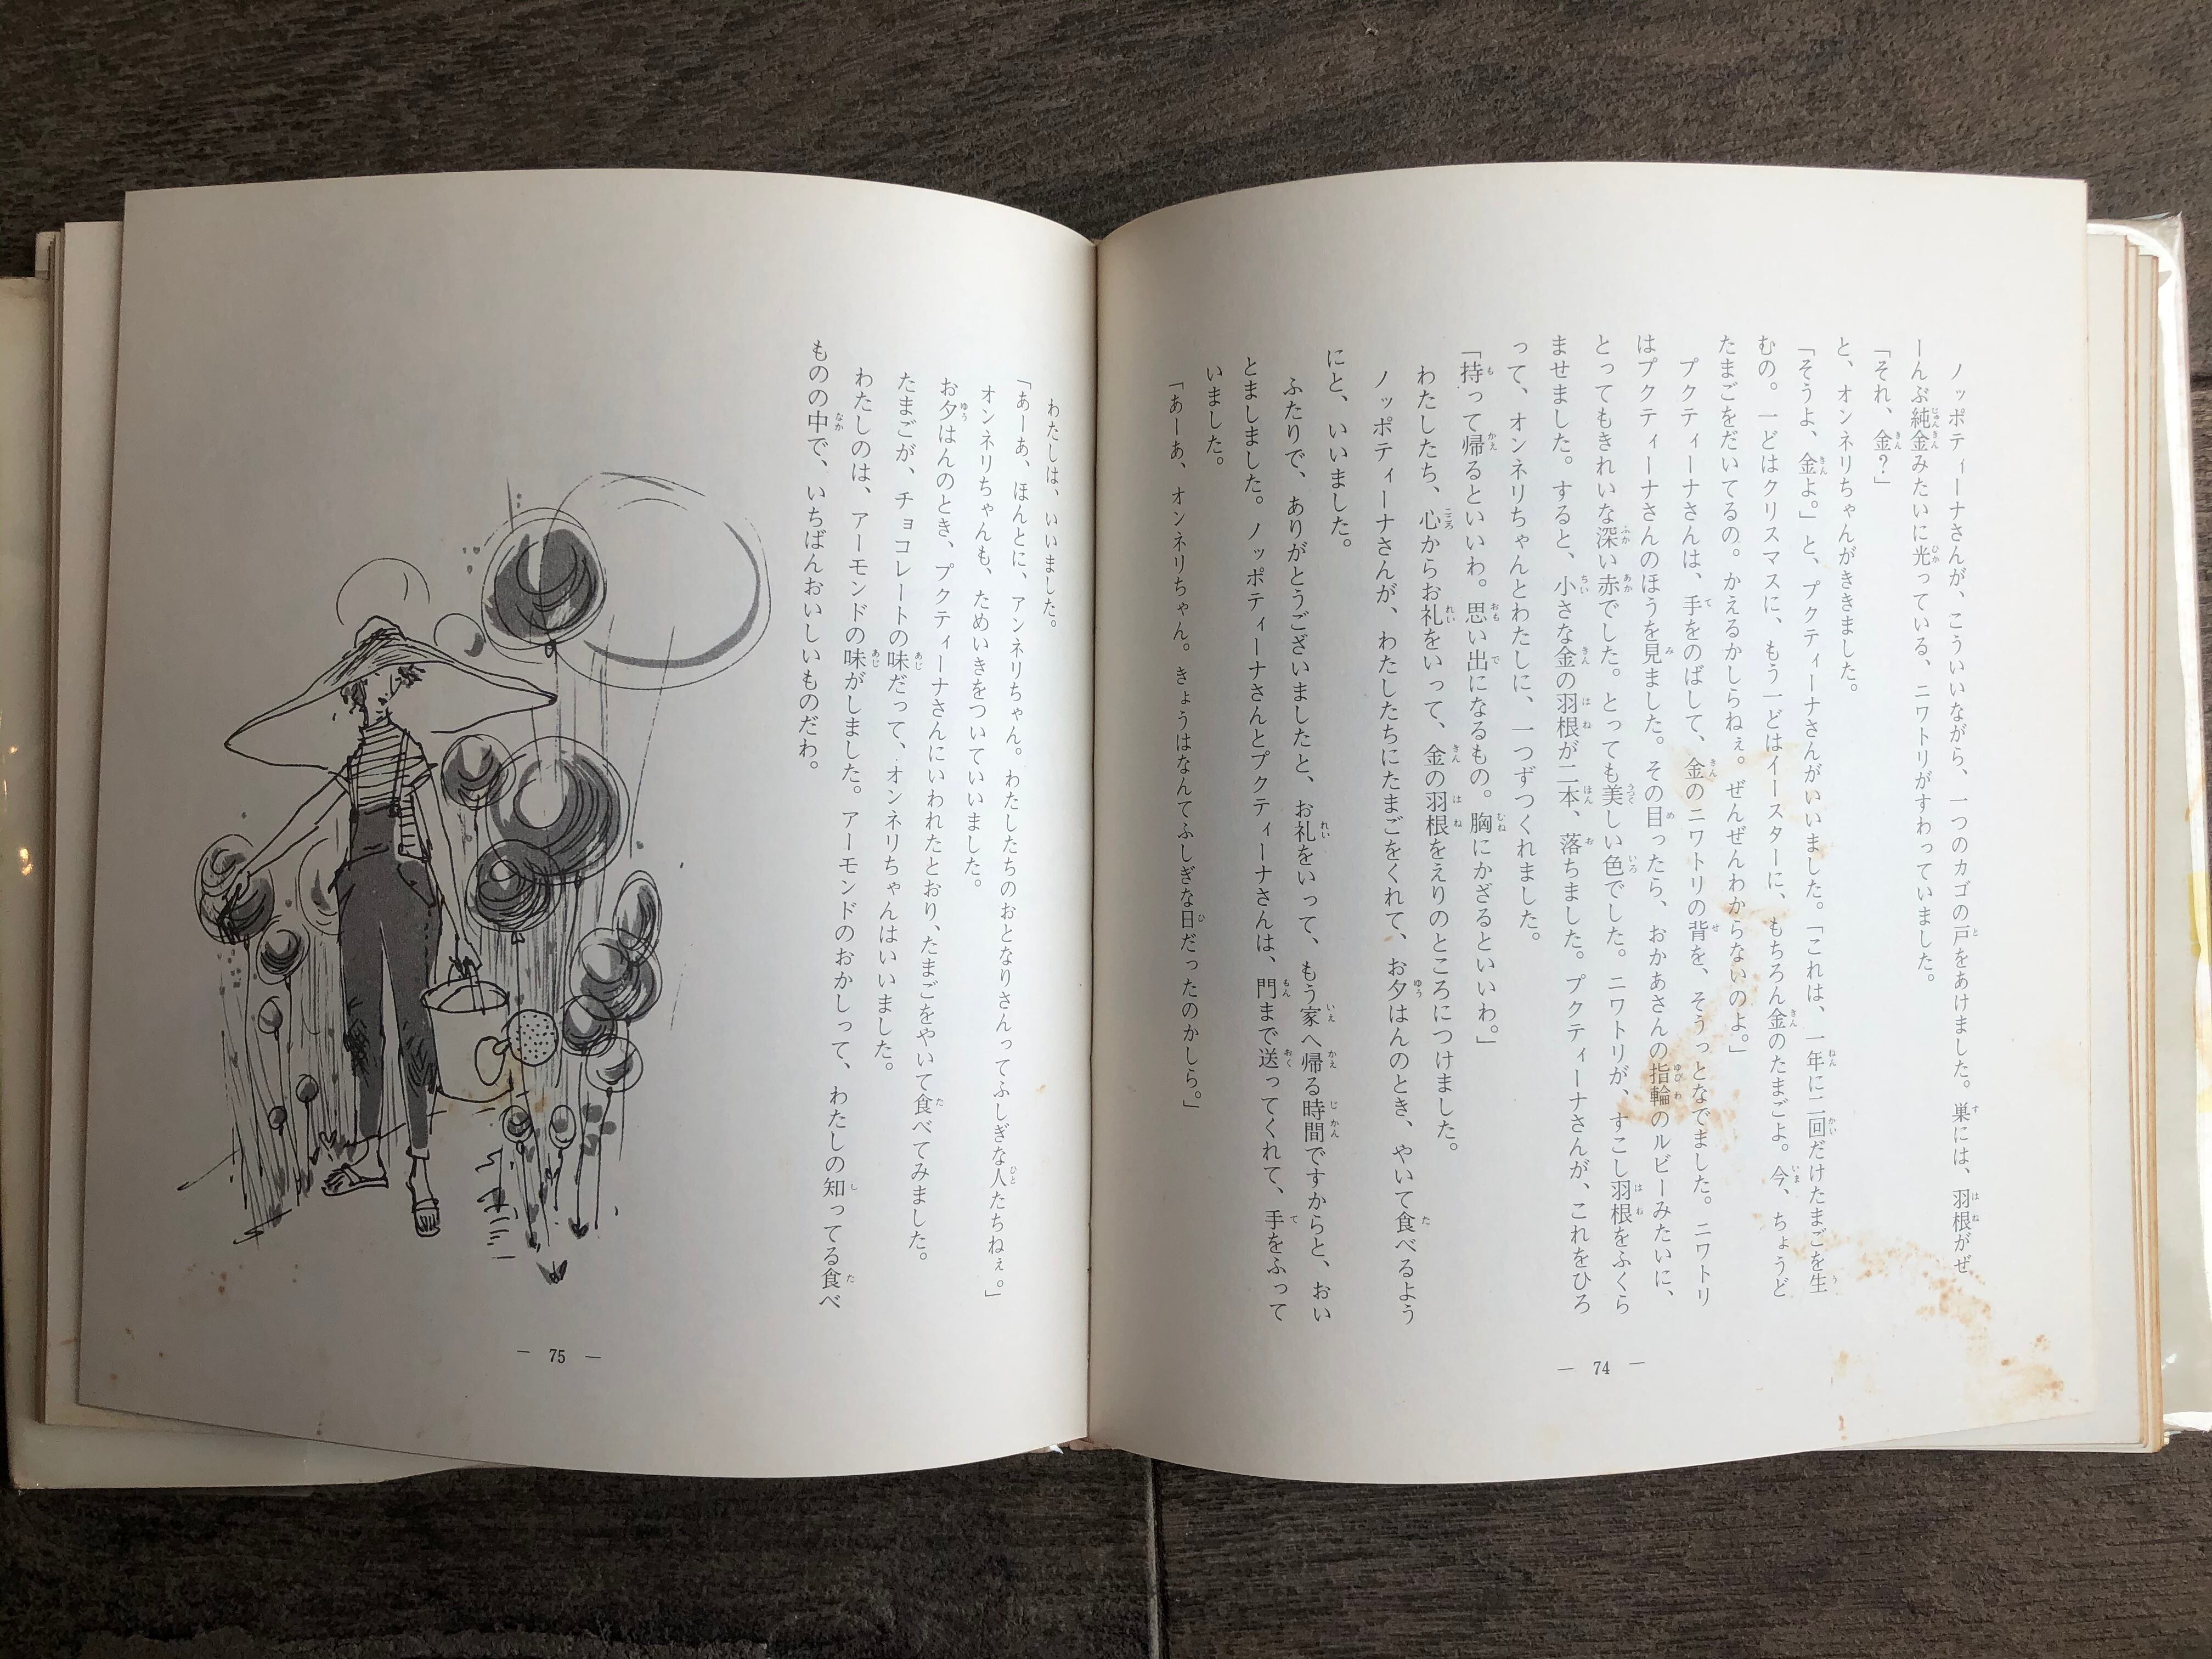 ノッポティーナさんが、こういいながら、一つのカゴの戸をあけました。巣には、羽根がぜ
ーんぶ純金みたいに光っている、ニワトリがすわっていました。
「それ、金？」
と、オンネリちゃんがききました。
「そうよ、金よ。」と、プクティーナさんがいいました。「これは、一年に二回だけたまごを生
むの。一どはクリスマスに、もう一どはイースターに、もちろん金のたまごよ。今、ちょうど
たまごをだいてるの。かえるかしらねぇ。ぜんぜんわからないのよ。」
プクティーナさんは、手をのばして、金のニワトリの背を、そうっとなでました。ニワトリ
はプクティーナさんのほうを見ました。その目ったら、おかあさんの指輪のルビーみたいに、
とってもきれいな深い赤でした。とっても美しい色でした。ニワトリが、すこし羽根をふくら
ませました。すると、小さな金の羽根が二本、落ちました。プクティーナさんが、これをひろ
って、オンネリちゃんとわたしに、一つずつくれました。
「持って帰るといいわ。思い出になるもの。胸にかざるといいわ。」
わたしたち、心からお礼をいって、金の羽根をえりのところにつけました。
ノッポティーナさんが、わたしたちにたまごをくれて、お夕はんのとき、やいて食べるよう
にと、いいました。
ふたりで、ありがとうございましたと、お礼をいって、もう家へ帰る時間ですからと、おい
とましました。ノッポティーナさんとプクティーナさんは、門まで送ってくれて、手をふって
いました。
「あーあ、オンネリちゃん。きょうはなんてふしぎな日だったのかしら。」
— 74 —
わたしは、いいました。
「あーあ、ほんとに、アンネリちゃん。わたしたちのおとなりさんってふしぎな人たちねぇ。」
オンネリちゃんも、ためいきをついていいました。
お夕はんのとき、プクティーナさんにいわれたとおり、たまごをやいて食べてみました。
たまごが、チョコレートの味だって、オンネリちゃんはいいました。
わたしのは、アーモンドの味がしました。アーモンドのおかしって、わたしの知ってる食べ
ものの中で、いちばんおいしいものだわ。
— 75 —